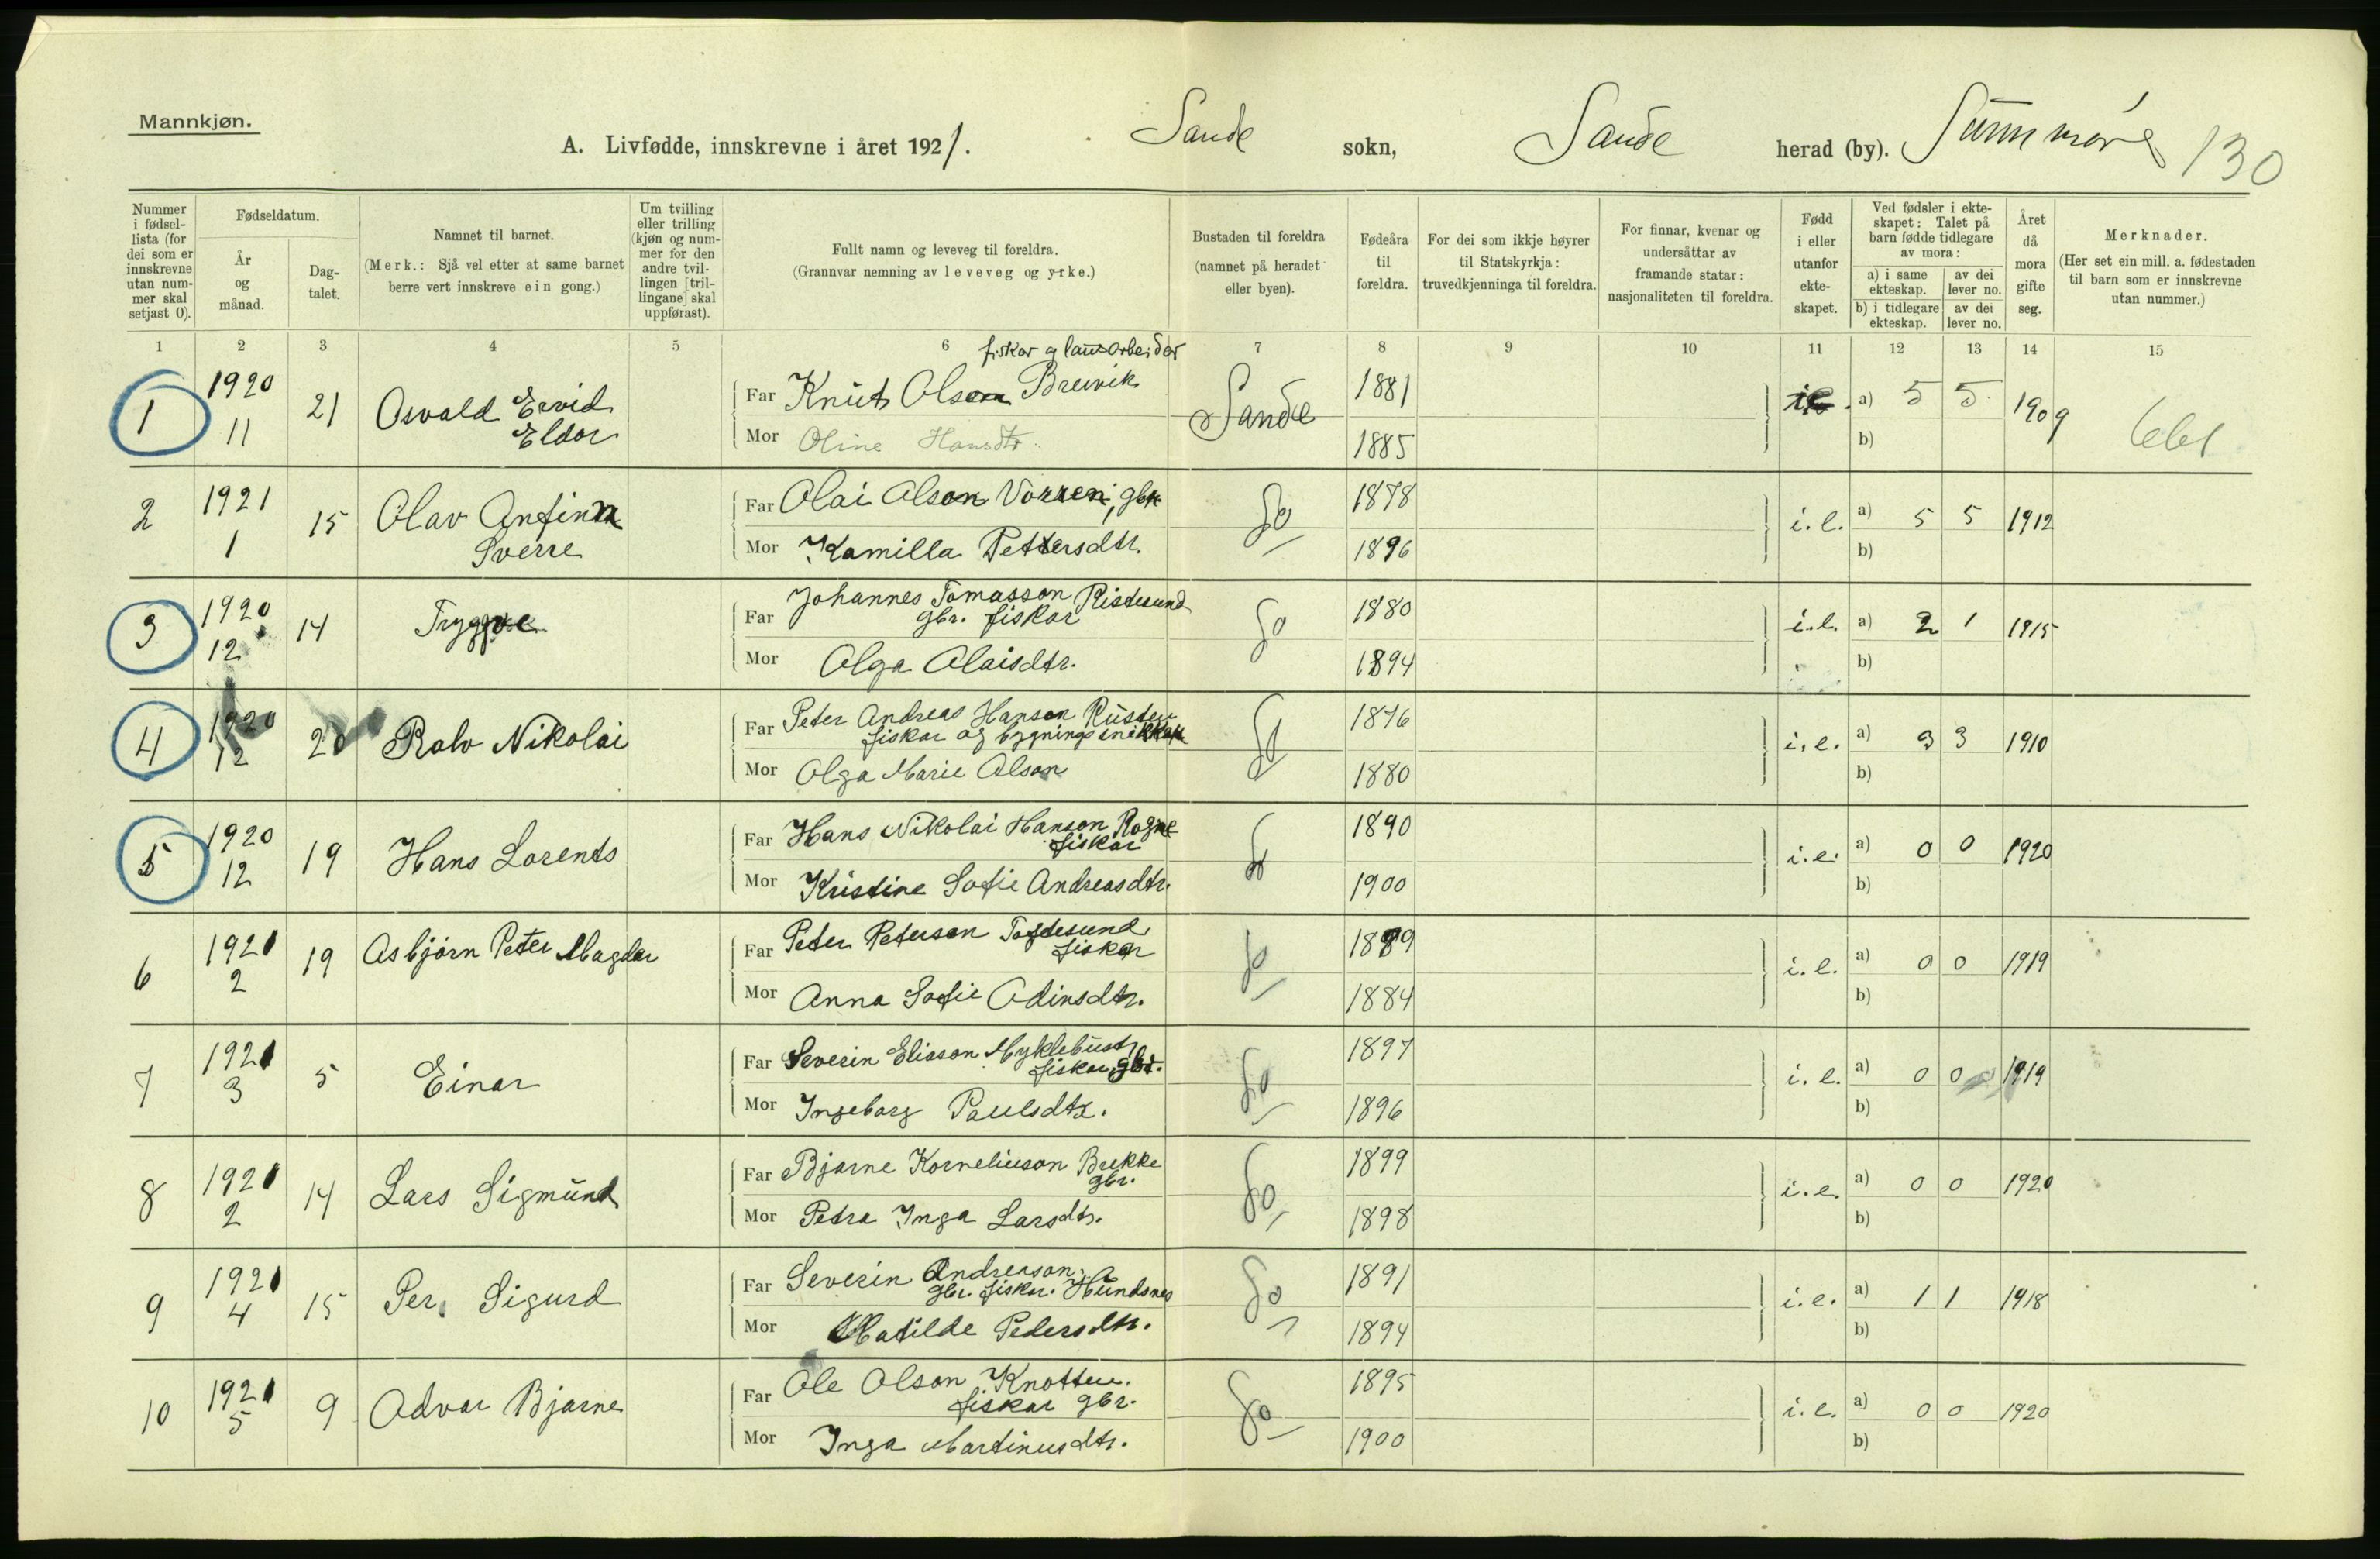 Mannkjøn.
A. Livfødde, innskrevne i året 1921. Sande sokn, Sande herad (by). Sunnmøre 130
Nummer i fødsel-lista (for dei som er innskrevne utan num-mer skal setjast 0).
Fødseldatum.
År og månad.
Dag-talet.
Namnet til barnet.
(Merk.: Sjå vel etter at same barnet berre vert innskreve ein gong.)
Um tvilling eller trilling (kjøn og num-mer for den andre tvil-lingen [tril-lingane] skal uppførast).
Fullt namn og leveveg til foreldra.
(Grannvar nemning av leveveg og yrke.)
Bustaden til foreldra (namnet på heradet eller byen).
Fødeåra til foreldra.
For dei som ikkje høyrer til Statskyrkja: truvedkjenninga til foreldra.
For finnar, kvenar og undersåttar av framande statar: nasjonaliteten til foreldra.
Fødd i eller utanfor ekte-skapet.
Ved fødsler i ekte-skapet: Talet på barn fødde tidlegare av mora:
a) i same ekteskap.
av dei lever no.
b) i tidlegare ekteskap.
av dei lever no.
Året då mora gifte seg.
Merknader.
(Her set ein mill. a. fødestaden til barn som er innskrevne utan nummer.)
1 2 3 4 5 6 7 8 9 10 11 12 13 14 15
fiskar og
1 1920 11 21 Osvald Ervid Eldor
Far Knut Olson Breivik Sande 1881 i.e. a) 5 5 1909
Mor Oline Hansdtr. 1885 b)
2 1921 1 15 Olav Anfinn Sverre
Far Olai Olson Vorren, gbr. Do 1878 i.e. a) 5 5 1912
Mor Kamilla Pettersdtr. 1896 b)
3 1920 12 14 Tryggve
Far Johannes Tomasson Ristesund
gbr. fiskar Do 1880 i.e. a) 2 1 1915
Mor Olga Olaisdtr. 1894 b)
4 1920 12 20 Ralv Nikolai
Far Peter Andreas Hanson Rusten
fiskar og bygningssnikkar Do 1876 i.e. a) 3 3 1910
Mor Olga Marie Olson 1880 b)
5 1920 12 19 Hans Lorents
Far Hans Nikolai Hanson Rogne
fiskar Do 1890 i.e. a) 0 0 1920
Mor Kristine Sofie Andreasdtr. 1900 b)
6 1921 2 19 Asbjørn Peter Magdar
Far Peter Peterson
fiskar Do i.e. a) 0 0 1919
Mor Anna Sofie Odinsdtr. 1884 b)
7 1921 3 5 Einar
Far Severin Eliasson Myklebust
fiskar, gbr. Do 1897 i.e. a) 0 0 1919
Mor Ingeborg Paulsdtr. 1896 b)
8 1921 2 14 Lars Sigmund
Far Bjarne Korneliuson Brekke
gbr. Do 1899 i.e. a) 0 0 1920
Mor Petra Inga Larsdtr. 1898 b)
9 1921 4 15 Per Sigurd
Far Severin Andreason
gbr. fiskar. Hundsnes Do 1891 i.e. a) 1 1 1918
Mor Matilde Pedersdtr. 1894 b)
10 1921 5 9 Odvar Bjarne
Far Ole Olson Knotten.
fiskar gbr. Do 1895 i.e. a) 0 0 1920
Mor Inga Martinusdtr. 1900 b)